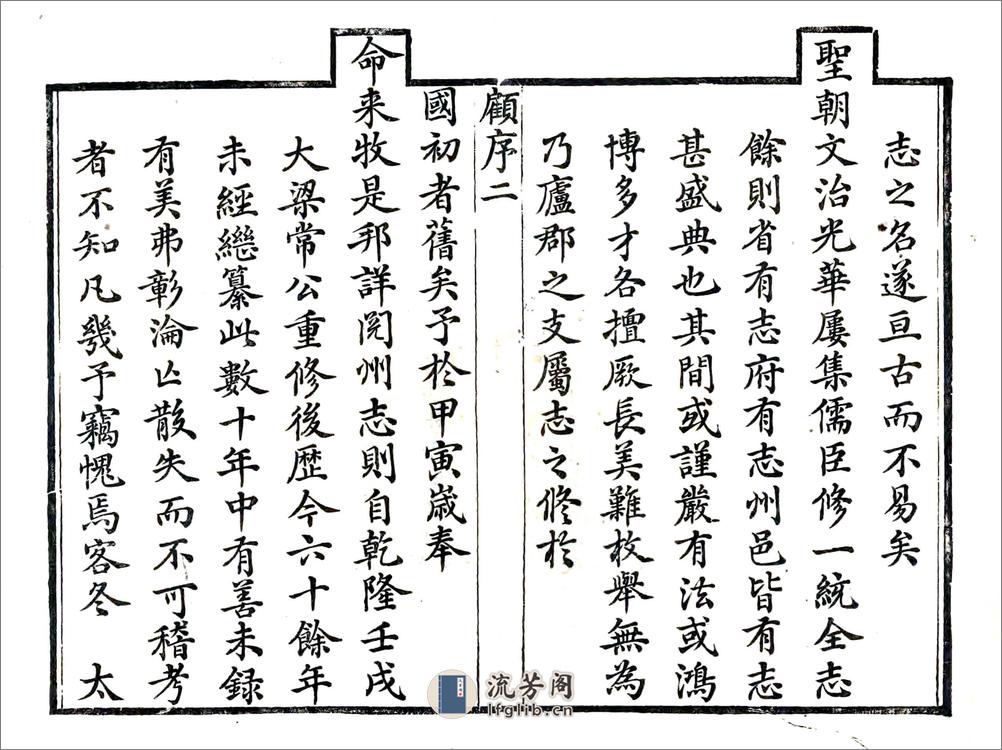 志之名遂亘古而不易矣
聖朝文治光華屢集儒臣修一統全志
餘則省有志府有志州邑皆有志
甚盛典也其間或謹嚴有法或鴻
博多才各擅厥長美難枚舉無為
乃廬郡之支屬志之修於
顧序二
國初者舊矣予於甲寅歲奉
命来牧是邦詳閱州志則自乾隆壬戌
大梁常公重修後歷今六十餘年
未經繼纂此數十年中有善未録
有美弗彰淪亾散失而不可稽考
者不知凡幾予竊愧焉客冬 太
流芳阁
lfglib.cn